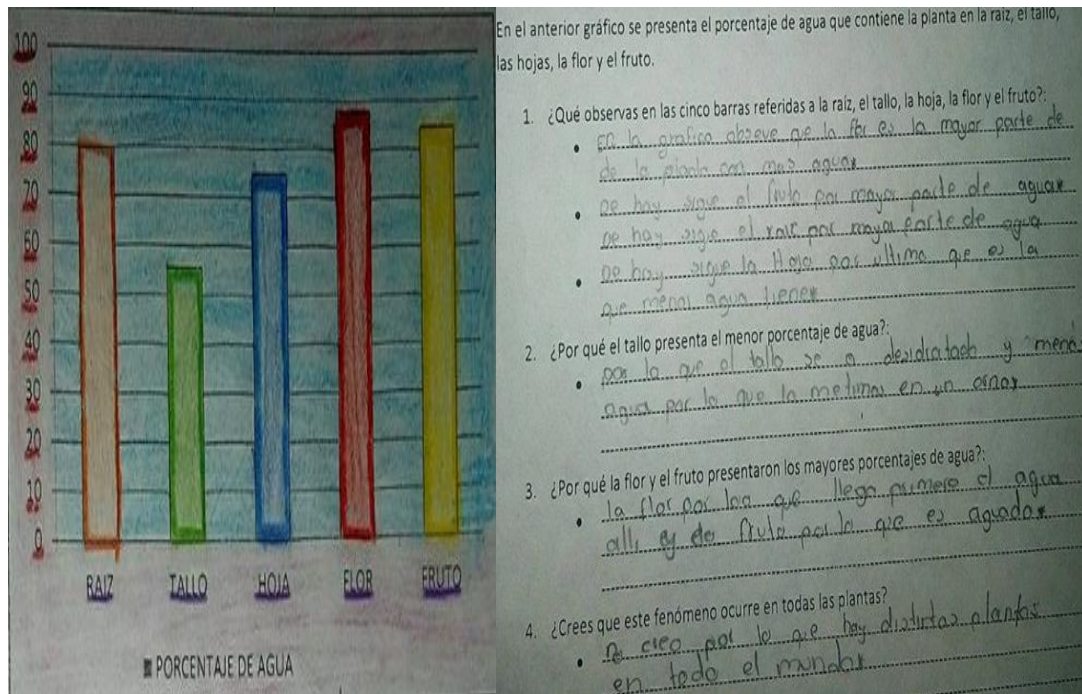 100
90
80
70
60
50
40
30
20
10
0
RAIZ TALLO HOJA FLOR FRUTO
PORCENTAJE DE AGUA
En el anterior gráfico se presenta el porcentaje de agua que contiene la planta en la raíz, el tallo,
las hojas, la flor y el fruto.
1. ¿Qué observas en las cinco barras referidas a la raíz, el tallo, la hoja, la flor y el fruto?:
En la grafica obseve que la flor es la mayor parte de
de la planta con mas agua
De hay sigue el fruto por mayor parte de agua
De hay sigue el raiz por mayor parte de agua
De hay sigue la Hoja por ultima que es la
que menos agua tiene
2. ¿Por qué el tallo presenta el menor porcentaje de agua?:
por lo que el tallo se a desidratado y menos
agua por lo que la metimos en un
3. ¿Por qué la flor y el fruto presentaron los mayores porcentajes de agua?:
la flor por que llega primero el agua
alli y fruto por lo que es aguado
4. ¿Crees que este fenómeno ocurre en todas las plantas?
No creo por lo que hay distintas plantas
en todo el mundo